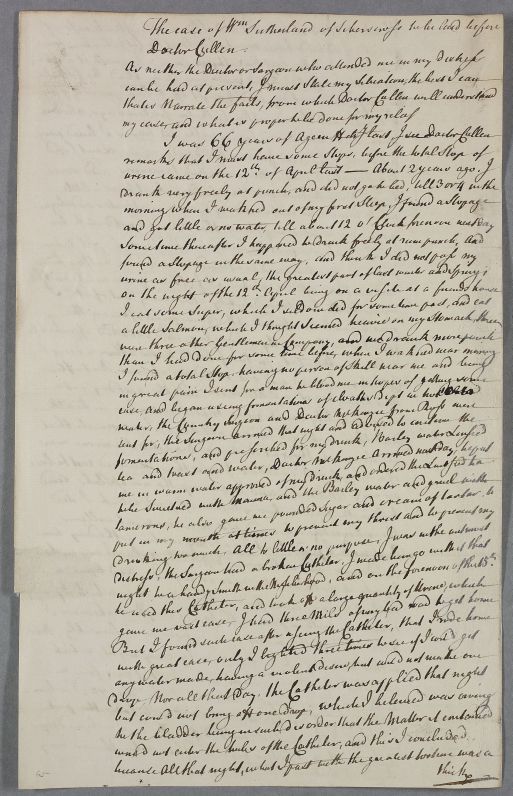 The case of Wm Sutherland of Shibercross to be laid before
Doctor Cullen -
As neither the Doctor or Surgeon who attended me in my distress
can be had at present, I must state my Situation, the best I can
that is Narrate the facts, from which Doctor Cullen will understand
my case, and what is proper to be done for my relief
I was 66 years of Age in last, I see Doctor Cullen
remarks that I must have some Stops, before the total Stop of
urine came on the 12th of April last — About 2 years ago, I
drank very freely at punch, and did not go to bed, till 3 or 4 in the
morning when I waked out of my first Sleep, I found a Stopage
and got little or no water, till about 12 o' Clock forenoon next day
Sometime thereafter I happened to drink freely at rum punch, And
found a Stopage in the same way, And think I did not pass my
urine as free as usual, the greatest part of last winter and Spring;
on the night of the 12th April being on a visite at a friends house
I eat some Super, which I seldom did for some time past, and eat
a little Salmon, which I thought Seemed heavie on my Stomach, there
were three other Gentlemen in Company, and we drank more punch
than I had done for some time before, when I waked near morning
I found a total Stop. having no person of Skill near me and being
in great pain I sent for a man to blood me in hopes of getting some
ease, And began using fomentations of cloaths dipt in hot
water, the Country Surgeon and Doctor McKenzie from Ross were
sent for, the Surgeon arrived that night and advised to continue the
fomentations, and prescribed for my drink, Barley water Linseed
tea and toast and water, Doctor McKenzie Arrived next day, he put
me in warm water approved of my drink, and ordered the Linseed tea
to be Sweetned with Manna, and the Barley water and gruel with
tamerens, he also gave me pounded Sugar and cream of tartar to
put in my mouth at times to prevent my thirst and to prevent my
drinking too much, All to little or no purpose, I was in the utmost
distress, the Surgeon had a broken Catheter I made him go with it that
night to a handy Smith in the Neighbourhood, and on the forenoon of the 15th
he used this Catheter, and took off a large quantity of Urine, which
gave me vast ease, I had three Miles of my road to get home
But I found such ease after useing the Catheter, that I rode home
with great ease, only I lighted three times to see if I could get
any water made, having a violent desire, but could not make one
drop. Nor all that Day. the Catheter was applied that night
but could not bring off one drop, which I believed was owing
to the bladder being in such disorder that the Matter it contained
would not enter the holes of the Catheter, and this I concluded.
because All that night, what I past with the greatest torture was a
thick